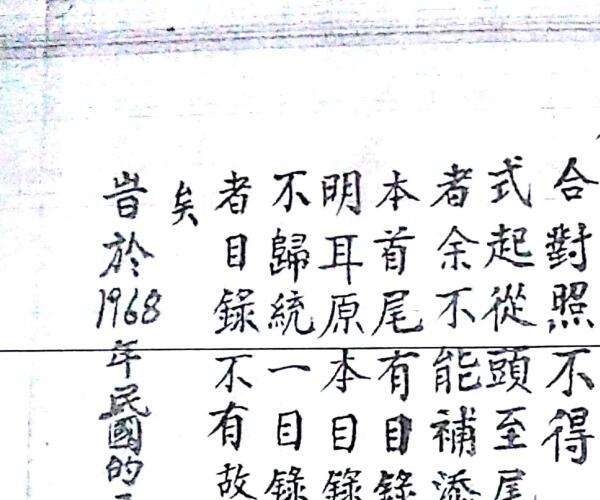 合對照不得
式起從頭至尾
者余不能補添
本首尾有目錄
明耳原本目錄
不歸統一目錄
者目錄不有故
矣
旹於1968年民國的